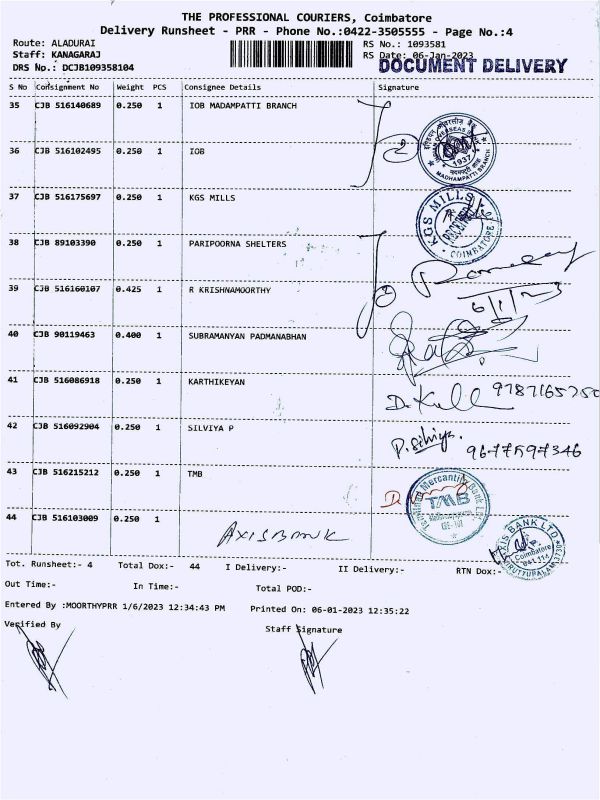 THE PROFESSIONAL COURIERS, Coimbatore
Delivery Runsheet - PRR - Phone No.:0422-3505555 - Page No.:4
Route: ALADURAI
RS No.: 1093581
Staff: KANAGARAJ
RS Date: 06-Jan-2023
DRS No.: DCJB109358104
DOCUMENT DELIVERY
S No Consignment No Weight PCS Consignee Details Signature
35 CJB 516140689 0.250 1 IOB MADAMPATTI BRANCH
2
OVERSEAS
1937
MADHAMPATTI BRANCH
36 CJB 516102495 0.250 1 IOB
37 CJB 516175697 0.250 1 KGS MILLS
KGS MILLS
COIMBATORE
38 CJB 89103390 0.250 1 PARIPOORNA SHELTERS
39 CJB 516160107 0.425 1 R KRISHNAMOORTHY
2
6/1/2023
40 CJB 90119463 0.400 1 SUBRAMANYAN PADMANABHAN
41 CJB 516086918 0.250 1 KARTHIKEYAN
9787165750
42 CJB 516092904 0.250 1 SILVIYA P
P. Silviya
9677597346
43 CJB 516215212 0.250 1 TMB
Tamilnad Mercantile Bank Ltd
TMB
44 CJB 516103009 0.250 1
AXIS BANK
AXIS BANK LTD.
Coimbatore
Tot. Runsheet:- 4 Total Dox:- 44 I Delivery:- II Delivery:- RTN Dox:-
Out Time:- In Time:- Total POD:-
Entered By :MOORTHYPRR 1/6/2023 12:34:43 PM Printed On: 06-01-2023 12:35:22
Verified By Staff Signature